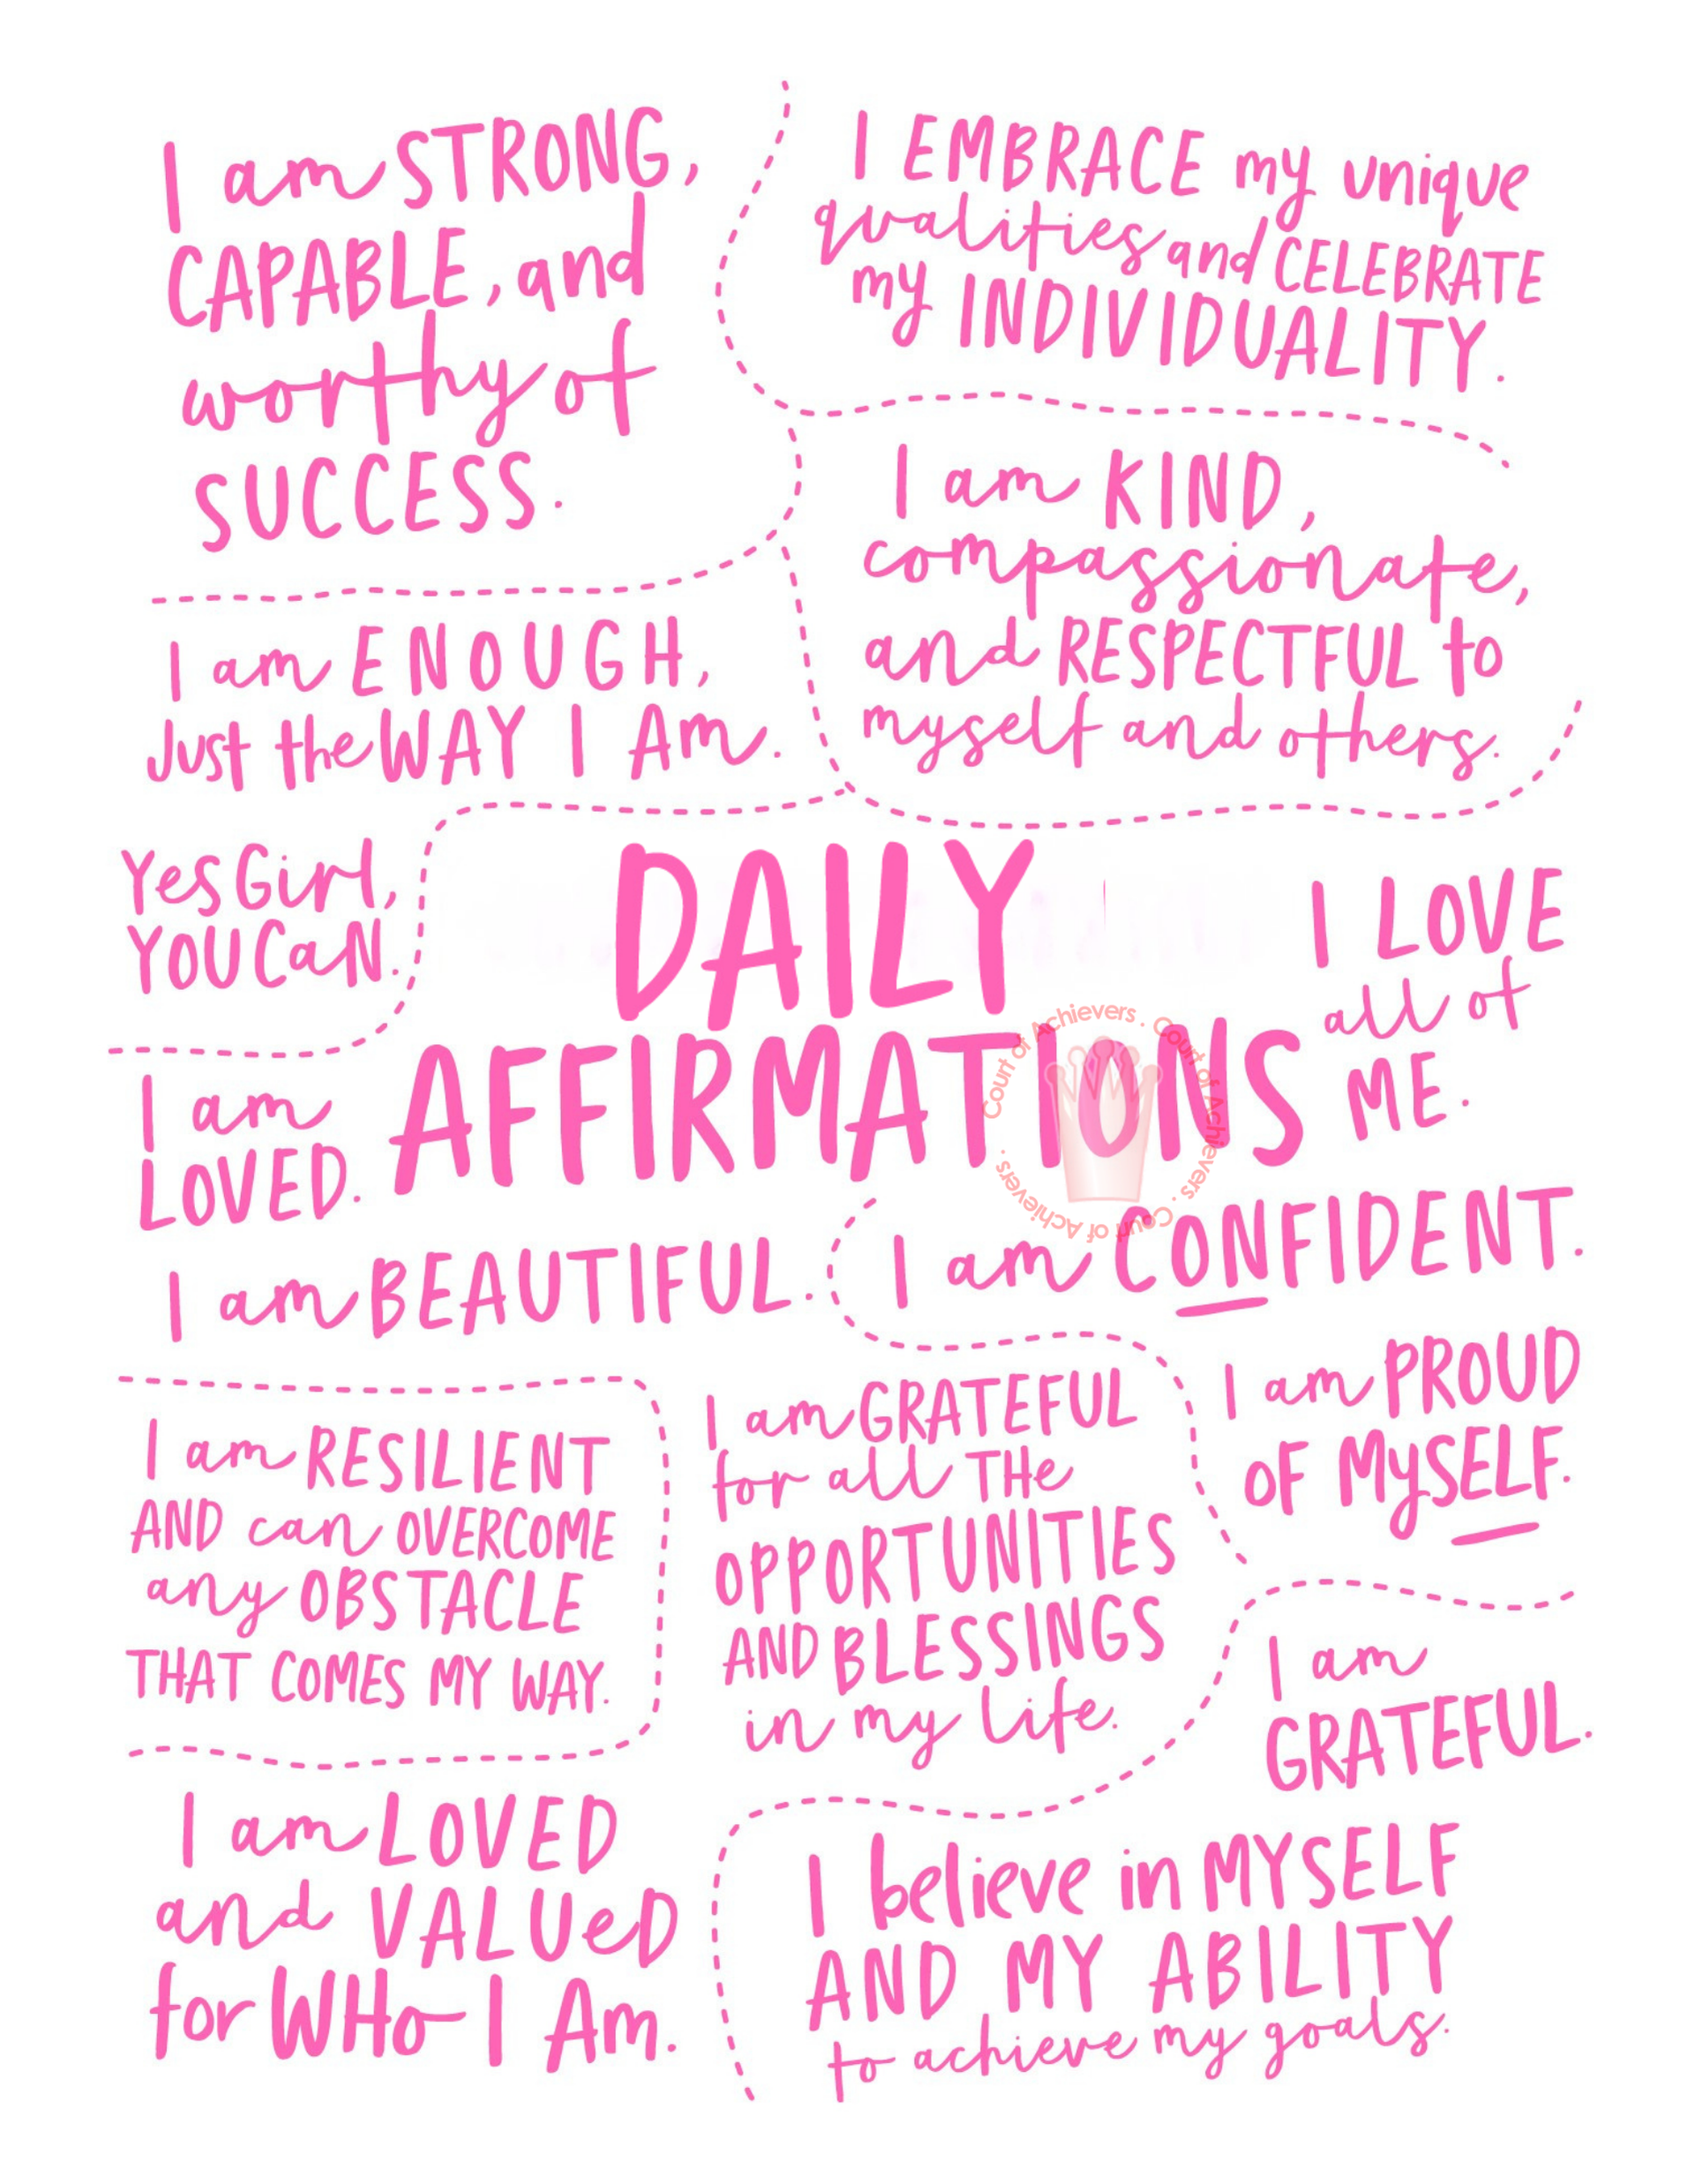 I am STRONG,
CAPABLE, and
worthy of
SUCCESS.
I EMBRACE my unique
qualities and CELEBRATE
my INDIVIDUALITY.
I am KIND,
compassionate,
and RESPECTFUL to
myself and others.
I am ENOUGH,
Just the WAY I Am.
Yes Girl,
YOU CaN.
DAILY
AFFIRMATIONS
I LOVE
all of
ME.
Court of Achievers . Court of Achievers . Court of Achievers .
I am
LOVED.
I am BEAUTIFUL.
I am CONFIDENT.
I am RESILIENT
AND can OVERCOME
any OBSTACLE
THAT COMES MY WAY.
I am GRATEFUL
for all THe
OPPORTUNITIES
AND BLESSINGS
in my life.
I am PROUD
OF MySELF.
I am
GRATEFUL.
I am LOVED
and VALUeD
for WHo I Am.
I believe in MYSELF
AND MY ABILITY
to achieve my goals.